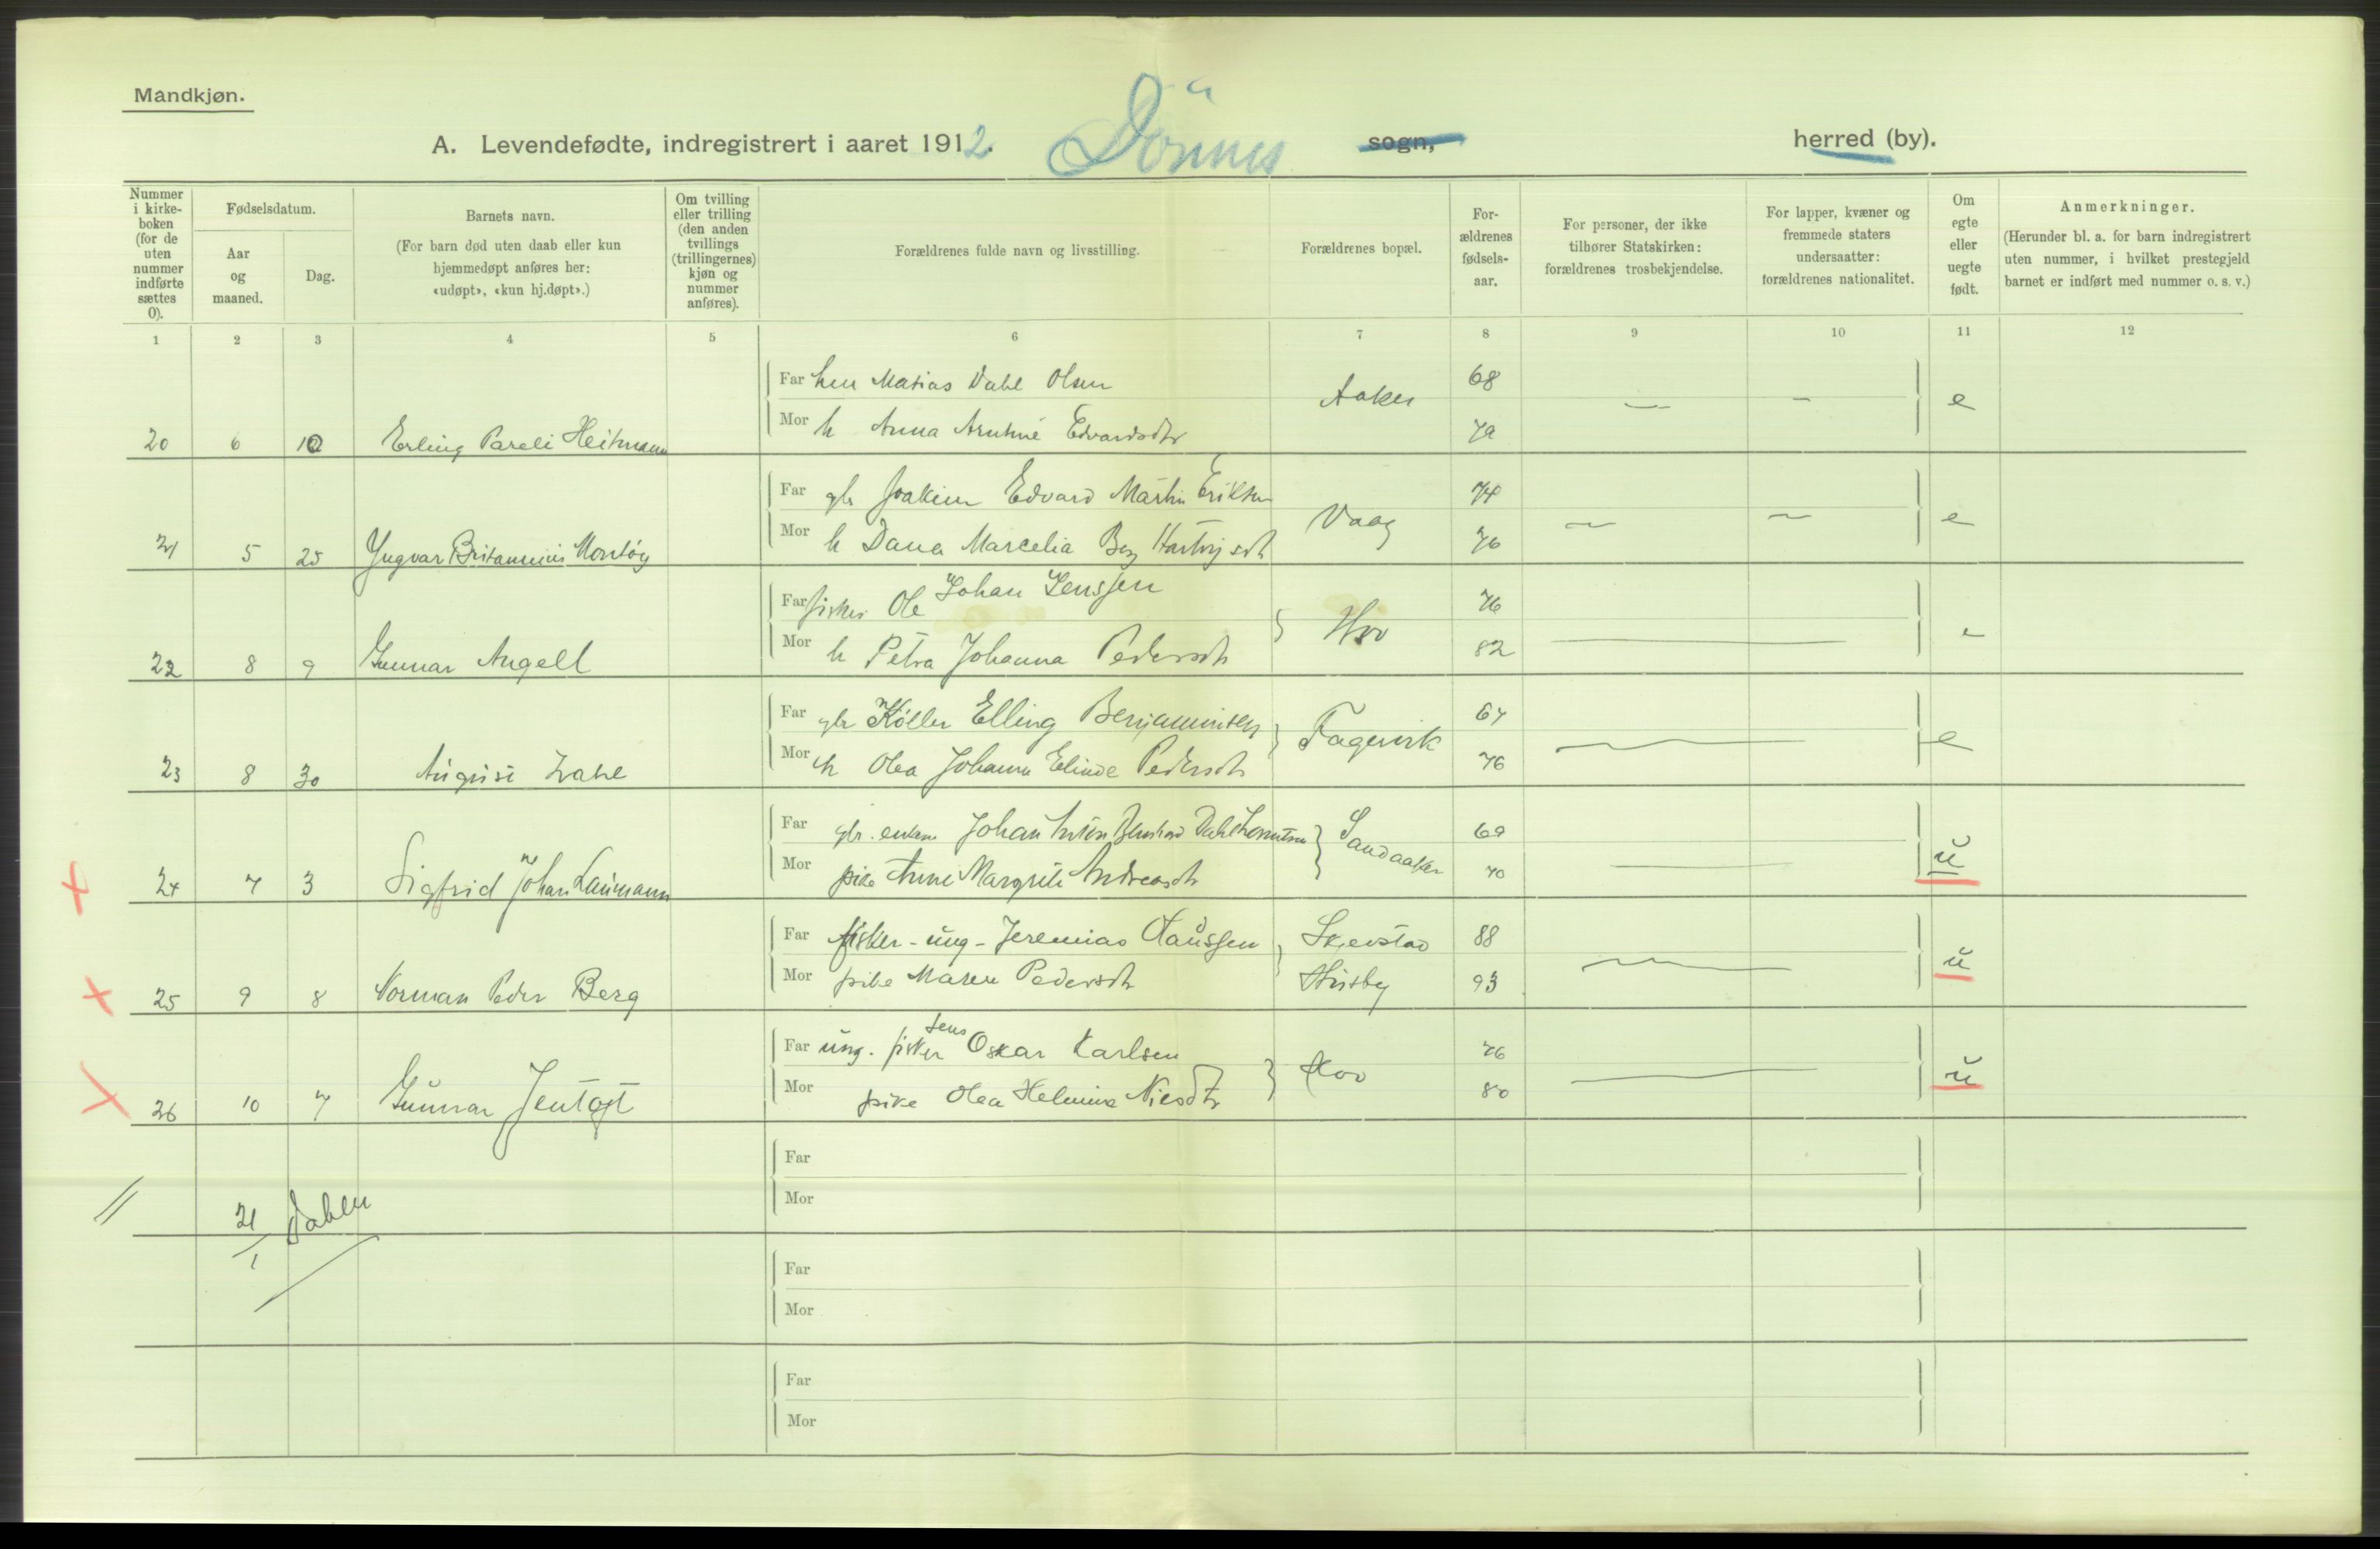 Mandkjøn.
A. Levendefødte, indregistrert i aaret 1912. Dönnes sogn, herred (by).
Nummer i kirkeboken (for de uten nummer indførte sættes 0).
Fødselsdatum.
Aar og maaned.
Dag.
Barnets navn.
(For barn død uten daab eller kun hjemmedøpt anføres her: «udøpt», «kun hj.døpt».)
Om tvilling eller trilling (den anden tvillings (trillingernes) kjøn og nummer anføres).
Forældrenes fulde navn og livsstilling.
Forældrenes bopæl.
Forældrenes fødselsaar.
For personer, der ikke tilhører Statskirken: forældrenes trosbekjendelse.
For lapper, kvæner og fremmede staters undersaatter: forældrenes nationalitet.
Om egte eller uegte født.
Anmerkninger.
(Herunder bl. a. for barn indregistrert uten nummer, i hvilket prestegjeld barnet er indført med nummer o. s. v.)
1 2 3 4 5 6 7 8 9 10 11 12
Far Matias Dahl Olsen 68
20 6 10 Erling Pareli Heitmann Aaker — — e
Mor h Anna Edvardsdtr 79
Far gbr Joakim Edvard Martin Eriksen 74
21 5 25 Yngvar Vaag — — e
Mor h Dana Marcelia 76
Far fisker Ole Johan Jenssen 76
22 8 9 Gunnar Angell Hov — e
Mor h Petra Johanna Pedersdtr 82
Far gbr Køller Elling Benjaminsen 67
23 8 30 August Zahl Fagervik — e
Mor h Olea Johanna Elinde Pedersdtr 76
Far gbr. enkem Johan Anton Bernhard Dahl 69
24 7 3 Sigfrid Johan Laumann Sandaaker — u
Mor pike Anne Margrete Andreasdtr 70
Far fisker - ung - Jeremias Claussen Skeistad 88
25 9 8 Norman Peder Berg — u
Mor pike Maren Pedersdtr Husby 93
Far ung. fisker Jens Oskar Karlsen 76
26 10 7 Gunnar Jentoft Hov — u
Mor pike Olea Helmine 80
Far
Mor
21/1 Dahlen
Far
Mor
Far
Mor